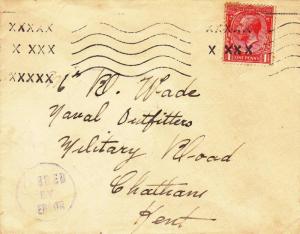 XXXXX
X XXX
XXXXX
X XXX
ONE PENNY
c/o B. Wade
Naval Outfitters
Military Road
Chatham
Kent